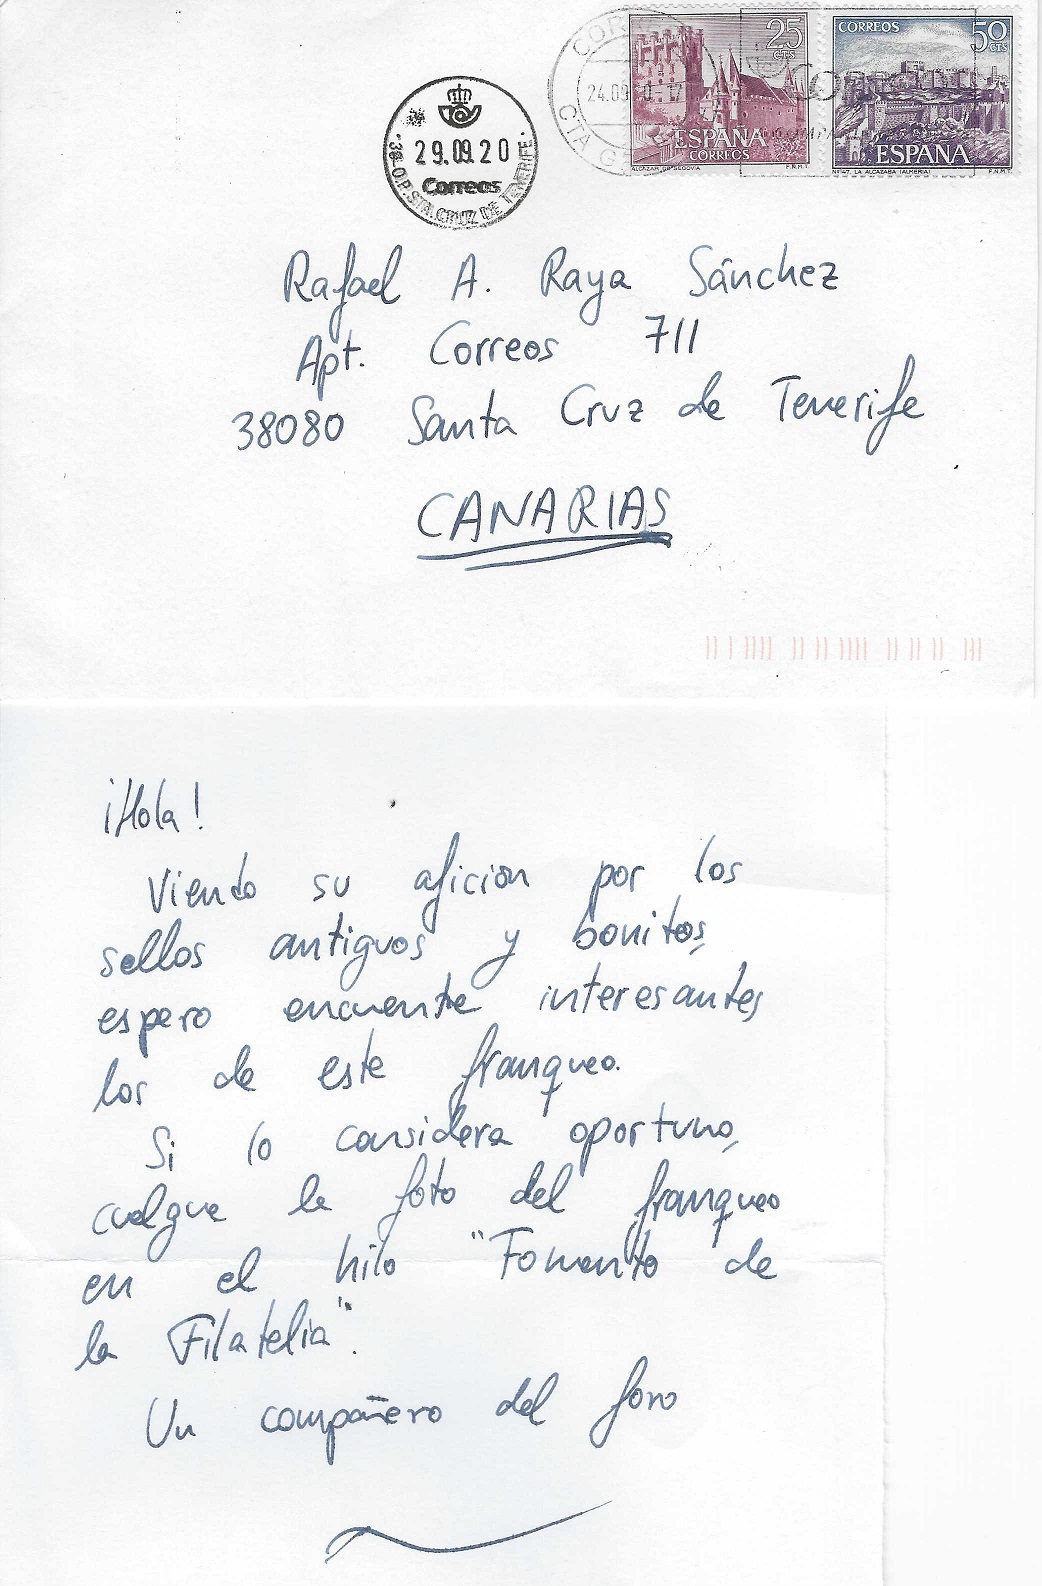 CORREOS
25
CTS
50
CTS
24.09
ESPAÑA
CORREOS
ESPAÑA
ALCAZAR DE SEGOVIA
F.N.M.T.
LA ALCAZABA (ALMERIA)
F.N.M.T.
29.09.20
Correos
38 O.P. STA. CRUZ DE TENERIFE
Rafael A. Raya Sánchez
Apt. Correos 711
38080 Santa Cruz de Tenerife
CANARIAS
¡Hola!
Viendo su afición por los
sellos antiguos y bonitos,
espero encuentre interesantes
los de este franqueo.
Si lo considera oportuno,
cuelgue la foto del franqueo
en el hilo "Fomento de
la Filatelia".
Un compañero del foro